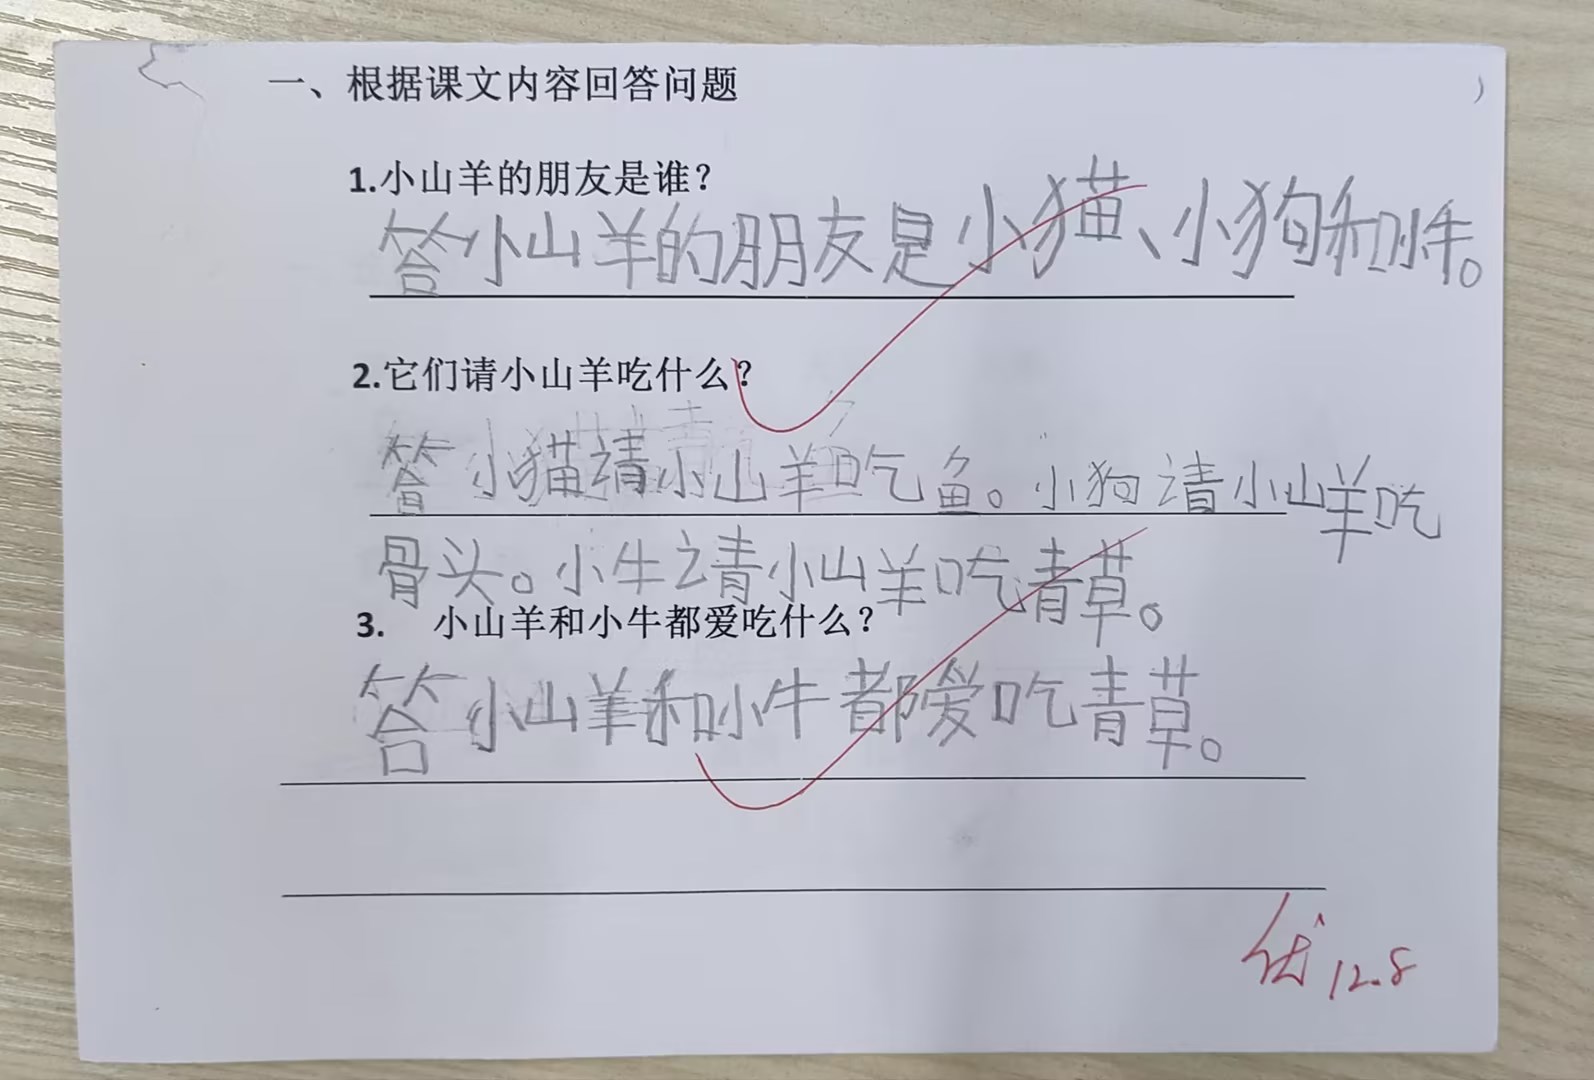 一、根据课文内容回答问题
1.小山羊的朋友是谁？
答小山羊的朋友是小猫、小狗和小牛。
2.它们请小山羊吃什么？
答小猫请小山羊吃鱼。小狗请小山羊吃
骨头。小牛请小山羊吃青草。
3. 小山羊和小牛都爱吃什么？
答小山羊和小牛都爱吃青草。
优 12.8